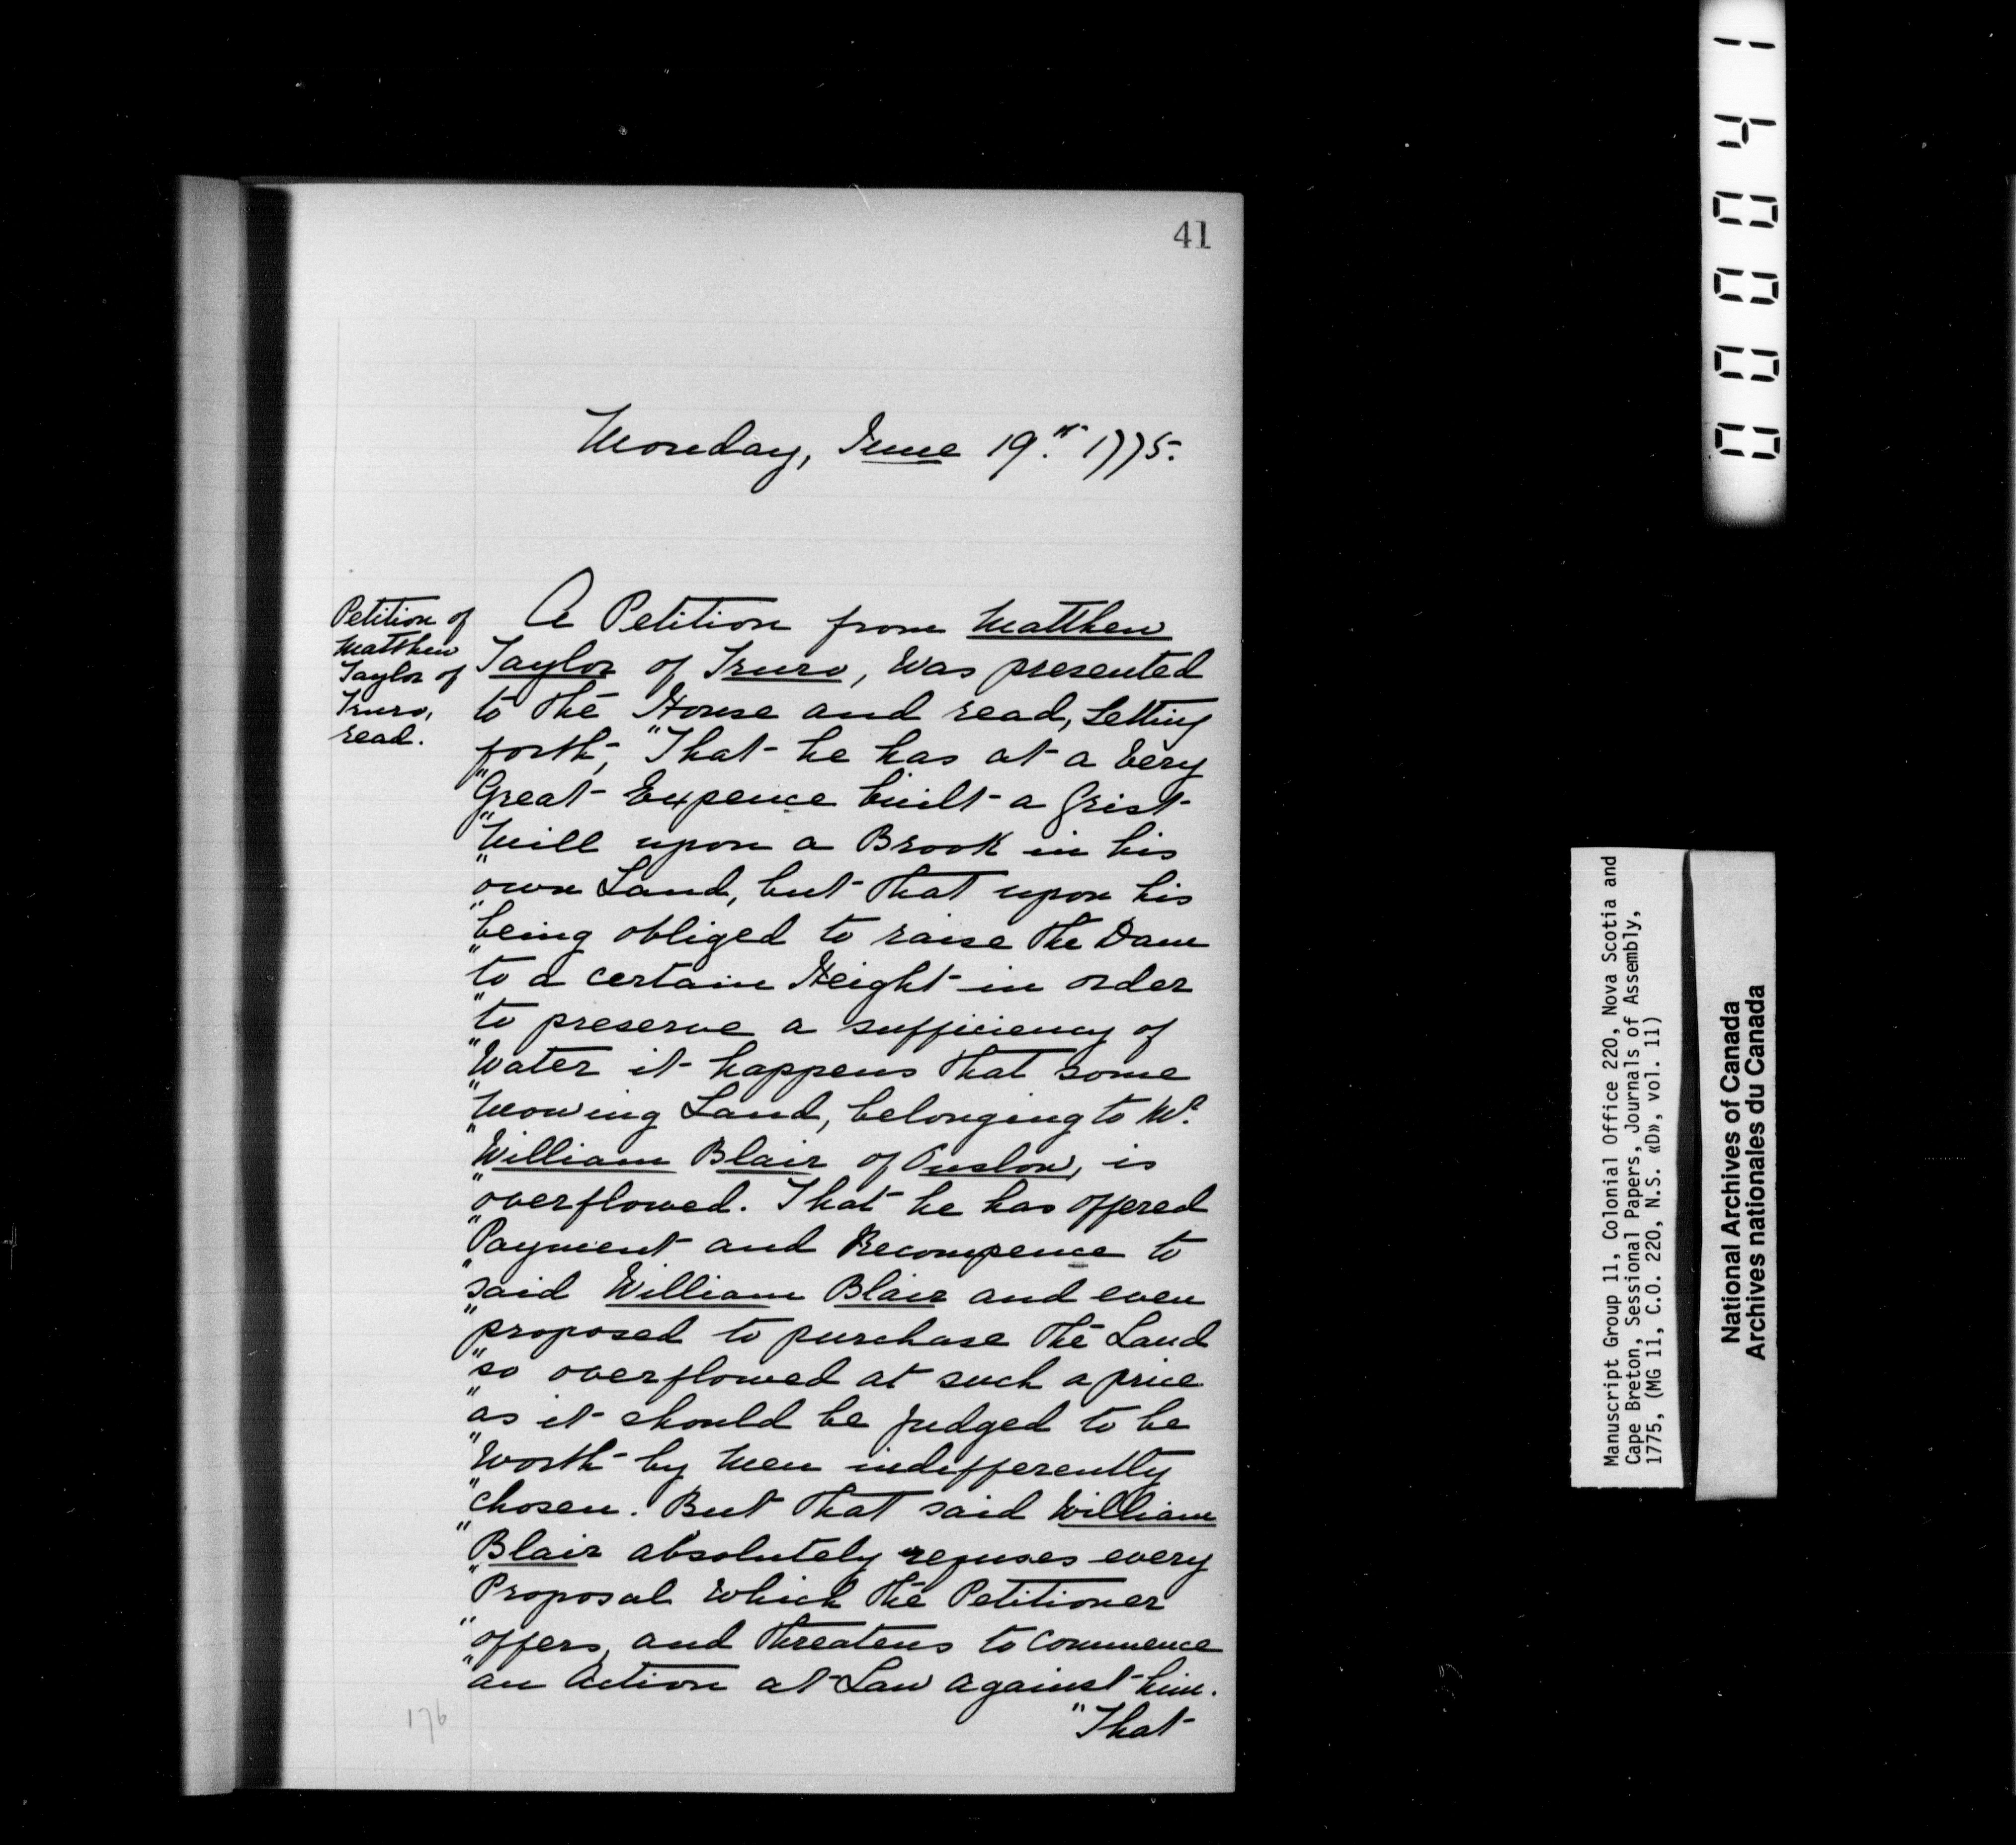 41
Monday, June 19.th 1775.
Petition of
Matthew
Taylor of
Truro,
read.
A Petition from Matthew
Taylor of Truro, Was presented
to the House and read, Setting
forth, "That he has at a Very
"Great Expence built a Grist
"Mill upon a Brook in his
"own Land, but that upon his
"being obliged to raise the Dam
"to a certain Height in order
"to preserve a sufficiency of
"Water it happens that some
"Mowing Land, belonging to Mr.
"William Blair of Onslow, is
"overflowed. That he has offered
"Payment and Recompence to
"said William Blair and even
"proposed to purchase the Land
"so overflowed at such a price
"as it should be judged to be
"Worth by Men indifferently
"chosen. But that said William
"Blair absolutely refuses every
"Proposal which the Petitioner
"offers, and threatens to Commence
"an Action at Law against him.
"That
176
000041
Manuscript Group 11, Colonial Office 220, Nova Scotia and
Cape Breton, Sessional Papers, Journals of Assembly,
1775, (MG 11, C.O. 220, N.S. «D», vol. 11)
National Archives of Canada
Archives nationales du Canada